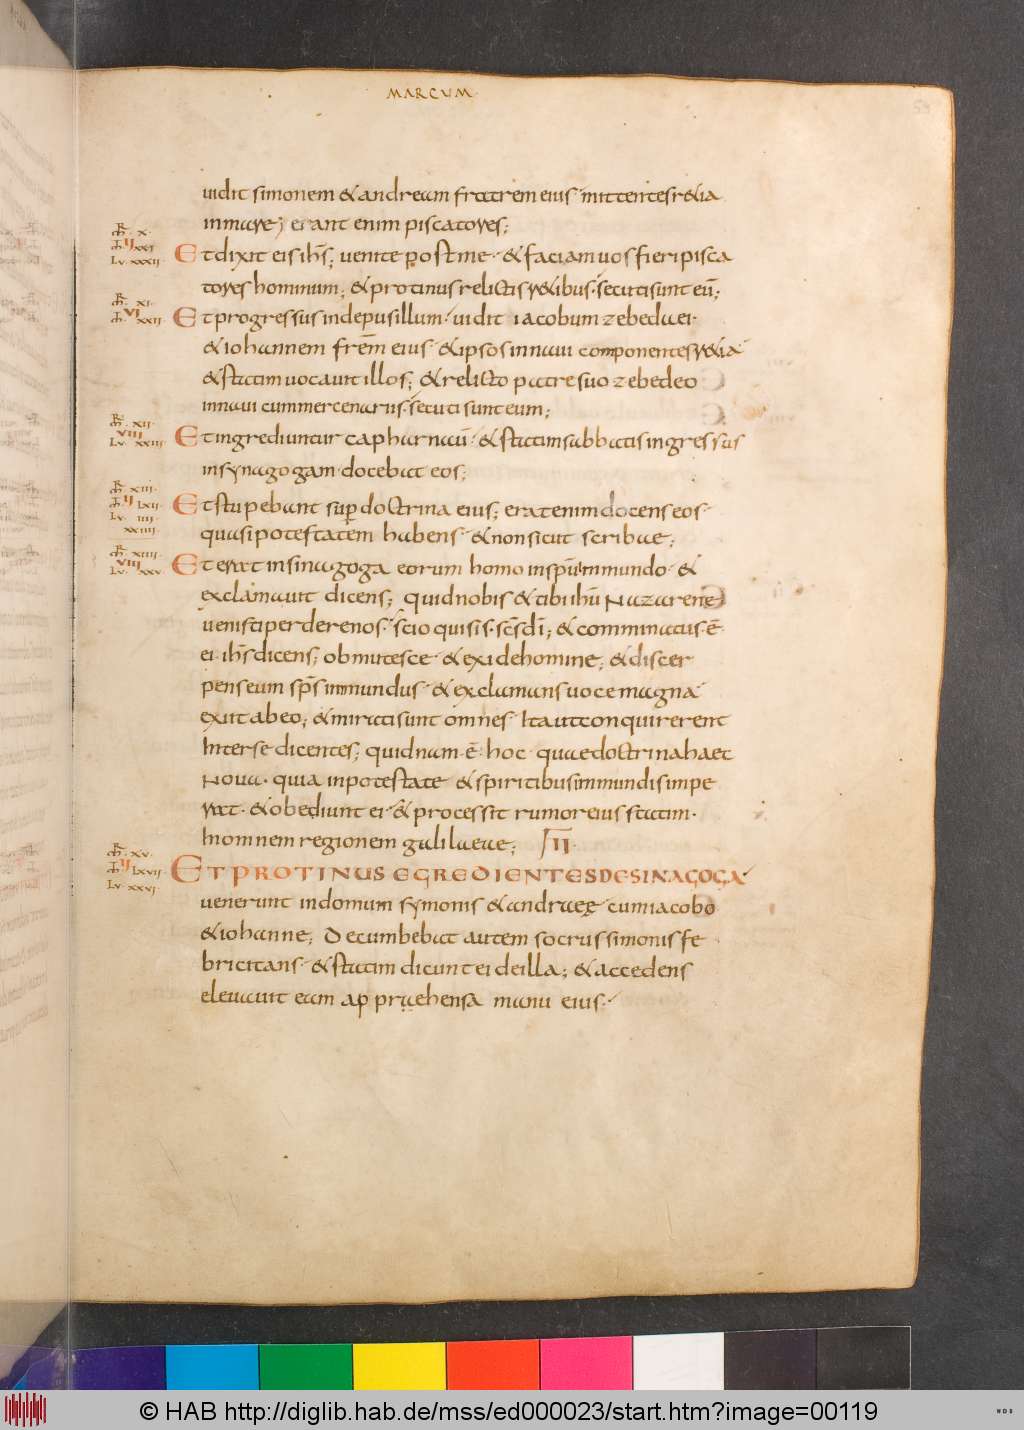 MARCUM
59
uidit simonem & andream fratrem eius · mittentes r&ia
in mare; erant enim piscatores;
Mr · X ·
Mt II XXI
Lv · XXXII
Et dixit eis ihs̄; uenite post me · & faciam uos fieri pisca
tores hominum; & protinus relictis r&ibus · secuti sunt eū;
Mr · XI ·
Mt VI XXII
Et progressus inde pusillum · uidit iacobum zebedaei ·
& iohannem frēm eius · & ipsos in naui componentes r&ia
& statim uocauit illos; & relicto patre suo zebedeo
in naui cum mercenariis · secuti sunt eum;
Mr · XII ·
VIII
Lv · XXIII
Et ingrediuntur capharnaū · & statim sabbatis ingressus
in synagogam · docebat eos;
Mr · XIII ·
Mt II LXII
Lv · IIII
XXIIII
Et stupebant sup̄ doctrina eius; erat enim docens eos ·
quasi potestatem habens · & non sicut scribae;
Mr · XIIII ·
VIII
Lv · XXV
Et erat in sinagoga eorum homo in spū inmundo · &
exclamauit dicens; quid nobis & tibi ihū Nazarene
uenisti perdere nos · scio qui sis · scs̄ dī; & comminatus · ē ·
ei · ihs̄ dicens; obmutesce · & exi de homine; & discer
pens eum sps̄ inmundus · & exclamans uoce magna
exiit ab eo; & mirati sunt omnes · Ita ut conquirerent
Inter se dicentes; quidnam · ē · hoc · quae doctrina haec
Noua · quia in potestate & spiritibus inmundis impe
rat · & obediunt ei · & processit rumor eius statim ·
In omnem regionem galilaeae; II
Mr · XV ·
Mt II LXVII
Lv · XXVI
ET PROTINUS EGREDIENTES DE SINAGOGA
uenerunt in domum symonis & andraeę · cum iacobo
& iohanne; Decumbebat autem socrus simonis fe
bricitans · & statim dicunt ei de illa; & accedens
eleuauit eam appraehensa manu eius ·
© HAB http://diglib.hab.de/mss/ed000023/start.htm?image=00119
WDB